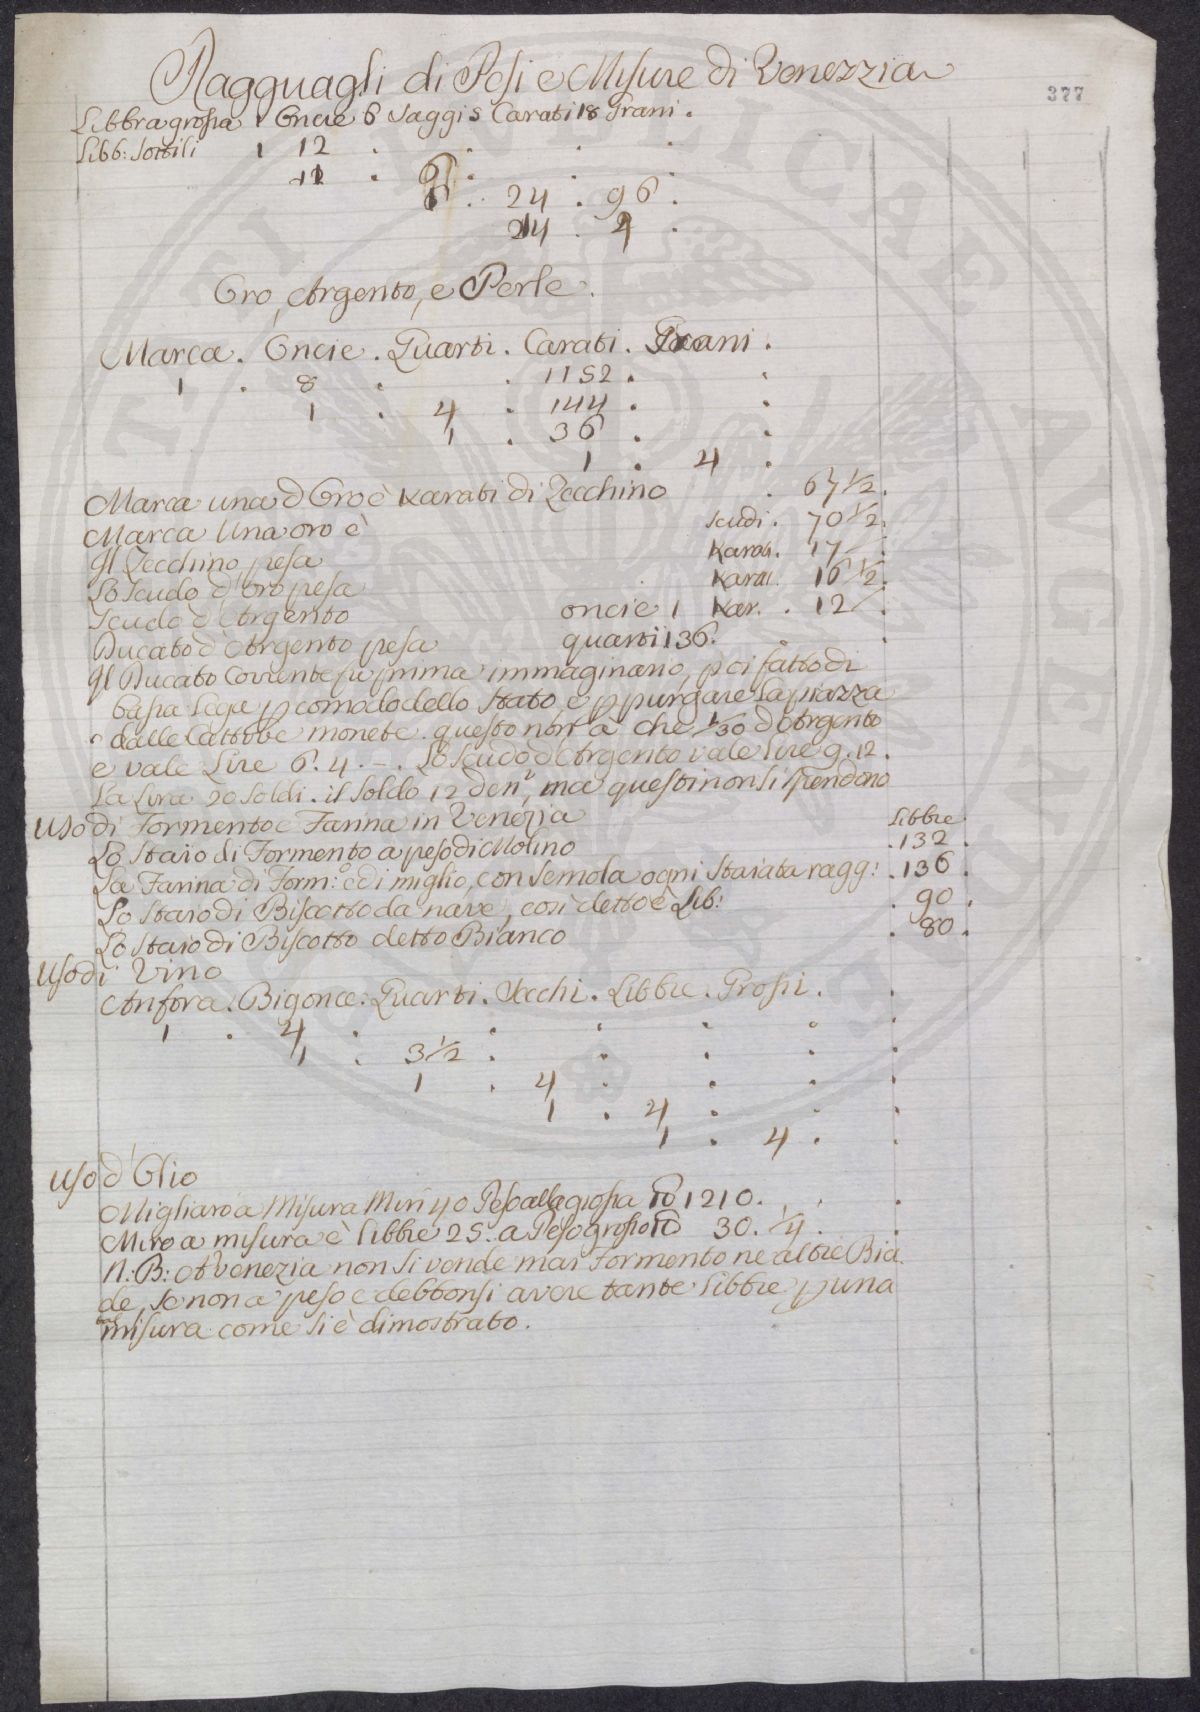 Ragguagli di Pesi e Misure di Venezzia
377
Libbra grossa 1 Oncie 6 Saggi 5 Carati 18 Grani.
Libb: Sottili 1 12 . . . .
. 6 . . .
6 . 24 . 96 .
. 4 .
Oro, Argento, e Perle.
Marca . Oncie . Quarti . Carati . Grani .
1 . 8 . . 1152 . .
1 . 4 . 144 . .
1 . 36 . .
1 . 4 .
Marca una d'Oro è Karati di Zecchino . 67 1/2.
Marca Una oro è Scudi . 70 1/2.
Il Zecchino pesa Karati. 17 .
Lo Scudo d'oro pesa Karati. 16 1/2.
Scudo d'Argento oncie 1 Kar. . 12 .
Ducato d'Argento pesa quarti 136. . .
Il Ducato Corrente fu prima immaginario, poi fatto di
bassa Lega p comodo dello Stato, e p purgare la piazza
dalle Cattive monete. questo non à che 1/30 d'Argento
e vale Lire 6. 4 . – . Lo Scudo d'Argento vale lire 9. 12.
La Lira 20 Soldi. il Soldo 12 den.r, ma questi non si spendono
Uso di Formento e Farina in Venezia Libbre
Lo Staio di Formento a peso di Molino .132 .
La Farina di Form:o e di miglio, con Semola ogni Staiata ragg: .136 .
Lo Staio di Biscotto da nave, cosi detto è Lib: . 90 .
Lo Staio di Biscotto detto Bianco . 80 .
Uso di Vino
Anfora . Bigonce : Quarti . Secchi . Libbre . Grossi .
1 . 4 . . . . .
1 . 3 1/2 . . . . .
1 . 4 . . . .
1 . 4 . . .
1 . 4 . .
Uso d'Olio
Migliaro a Misura Miri 40 Peso alla grossa 1210.
Miro a misura è libbre 25. a Peso grosso 30. 1/4 .
N: B: A Venezia non si vende mai Formento ne altre Bia
de, se non a peso e debbonsi avere tante libbre p una
tal misura come si è dimostrato.